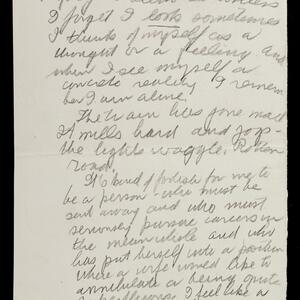 I forget I look sometimes
I think of myself as a
thought or a feeling and
when I see myself a
concrete reality I remem
ber I am alive.
The train has gone mad
It mills hard and
the lights waggle. Rotten
road
It's kind of foolish for me to
be a person who must be
sent away and who must
seriously pursue careers in
the meanwhile and who
has put herself into a position
where a wife like to
annihilate a being quite
I feel like a